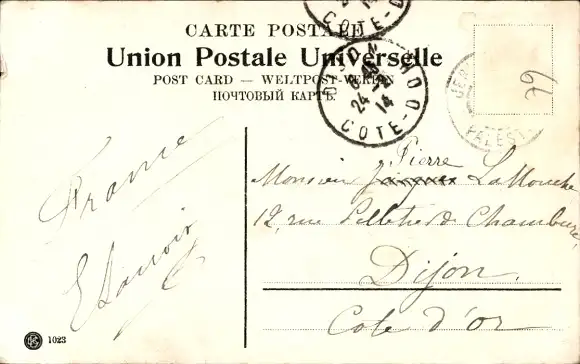 CARTE POSTALE
Union Postale Universelle
POST CARD — WELTPOST-VEREIN
ПОЧТОВЫЙ КАРТЪ
COTE-D
DIJON
24
14
COTE-D
JER
PALEST
79
France
Pierre
Monsieur Jacques LaMouche
12, rue Pelletier de Chambure,
Dijon
Cote d'or
1023